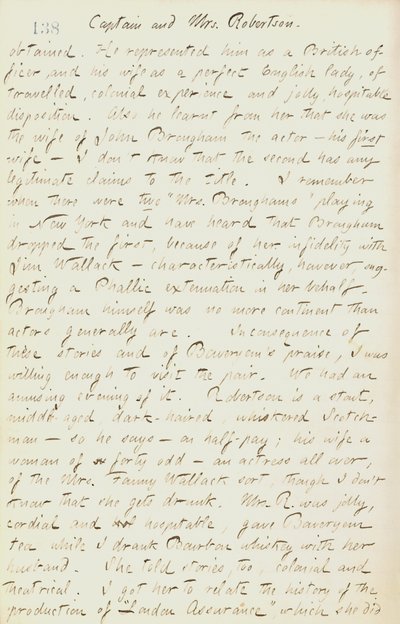 138
Captain and Mrs. Robertson.
obtained. He represented him as a British of-
ficer, and his wife as a perfect English lady, of
travelled, colonial experience and jolly, hospitable
disposition. Also he learnt from her that she was
the wife of John Brougham the actor — his first
wife — I don't know that the second has any
legitimate claims to the title. I remember
when there were two "Mrs. Broughams" playing
in New York and have heard that Brougham
dropped the first, because of her infidelity with
Jim Wallack — characteristically, however, sug-
gesting a Phallic extenuation in her behalf.
Brougham himself was no more continent than
actors generally are. Inconsequence of
these stories and of Boweryem's praise, I was
willing enough to visit the pair. We had an
amusing evening of it. Robertson is a stout,
middle aged, dark-haired, whiskered Scotch-
man — so he says — on half-pay; his wife a
woman of forty odd — an actress all over,
of the Mrs. Fanny Wallack sort, though I don't
know that she gets drunk. Mrs. R. was jolly,
cordial and hospitable, gave Boweryem
tea while I drank Bourbon whiskey with her
husband. She told stories, too, colonial and
theatrical. I got her to relate the history of the
production of "London Assurance", which she did